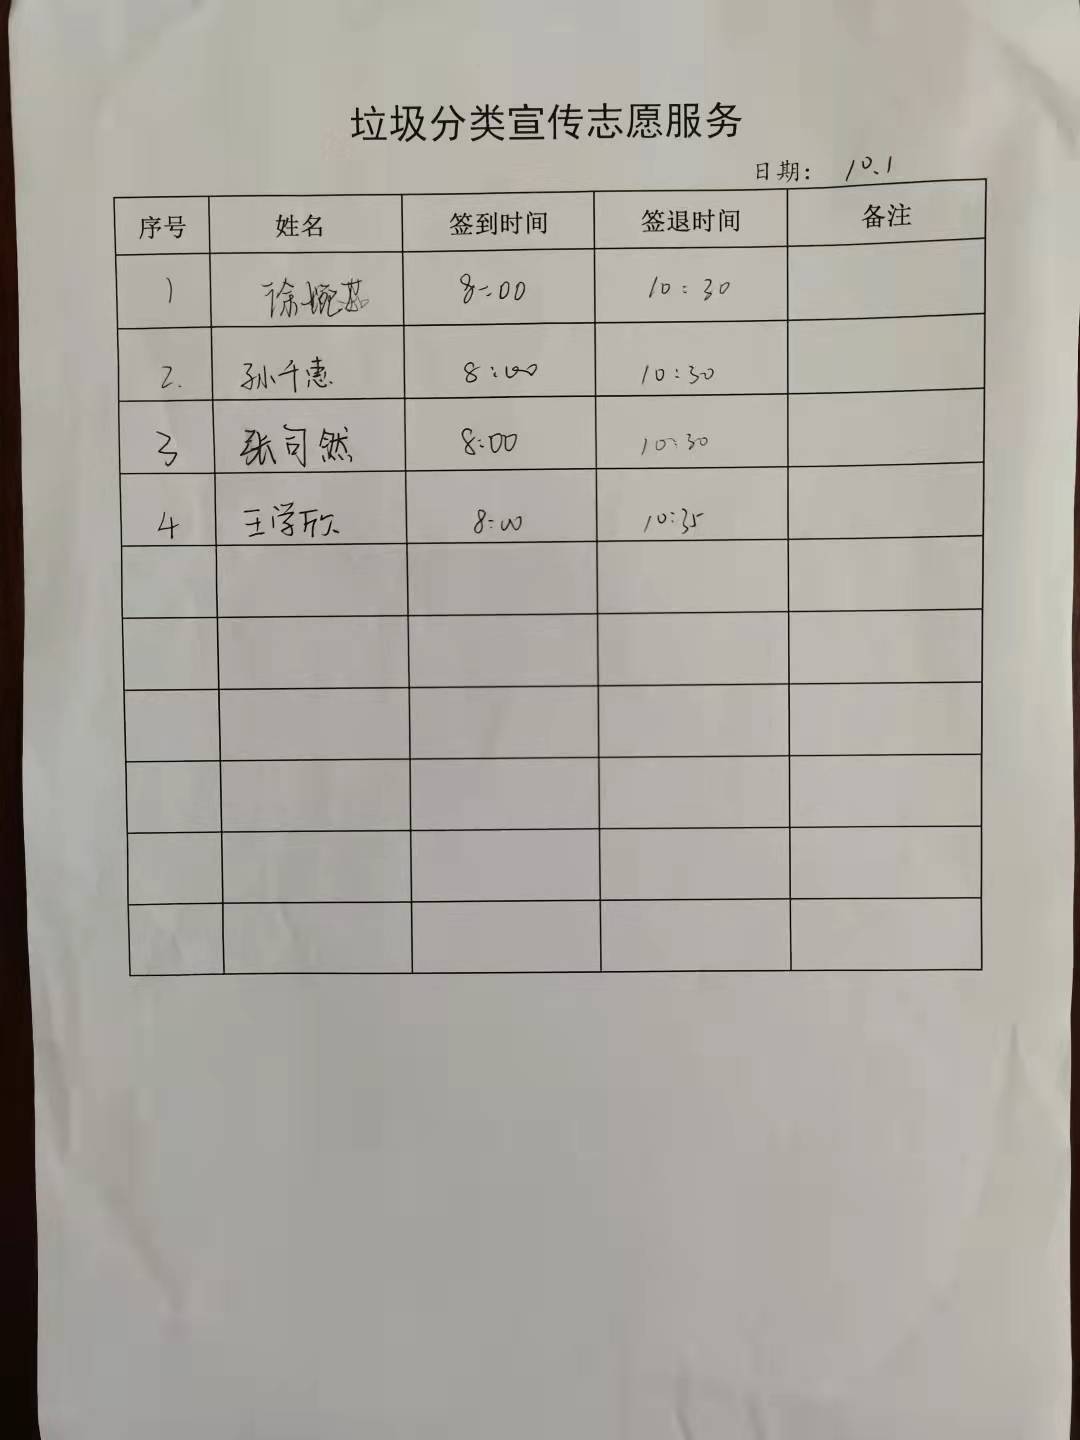 垃圾分类宣传志愿服务
日期： 10.1
序号 姓名 签到时间 签退时间 备注
1 徐婉蕊 8:00 10:30
2. 孙千惠 8:00 10:30
3 张司然 8:00 10:30
4 王学欣 8:00 10:35